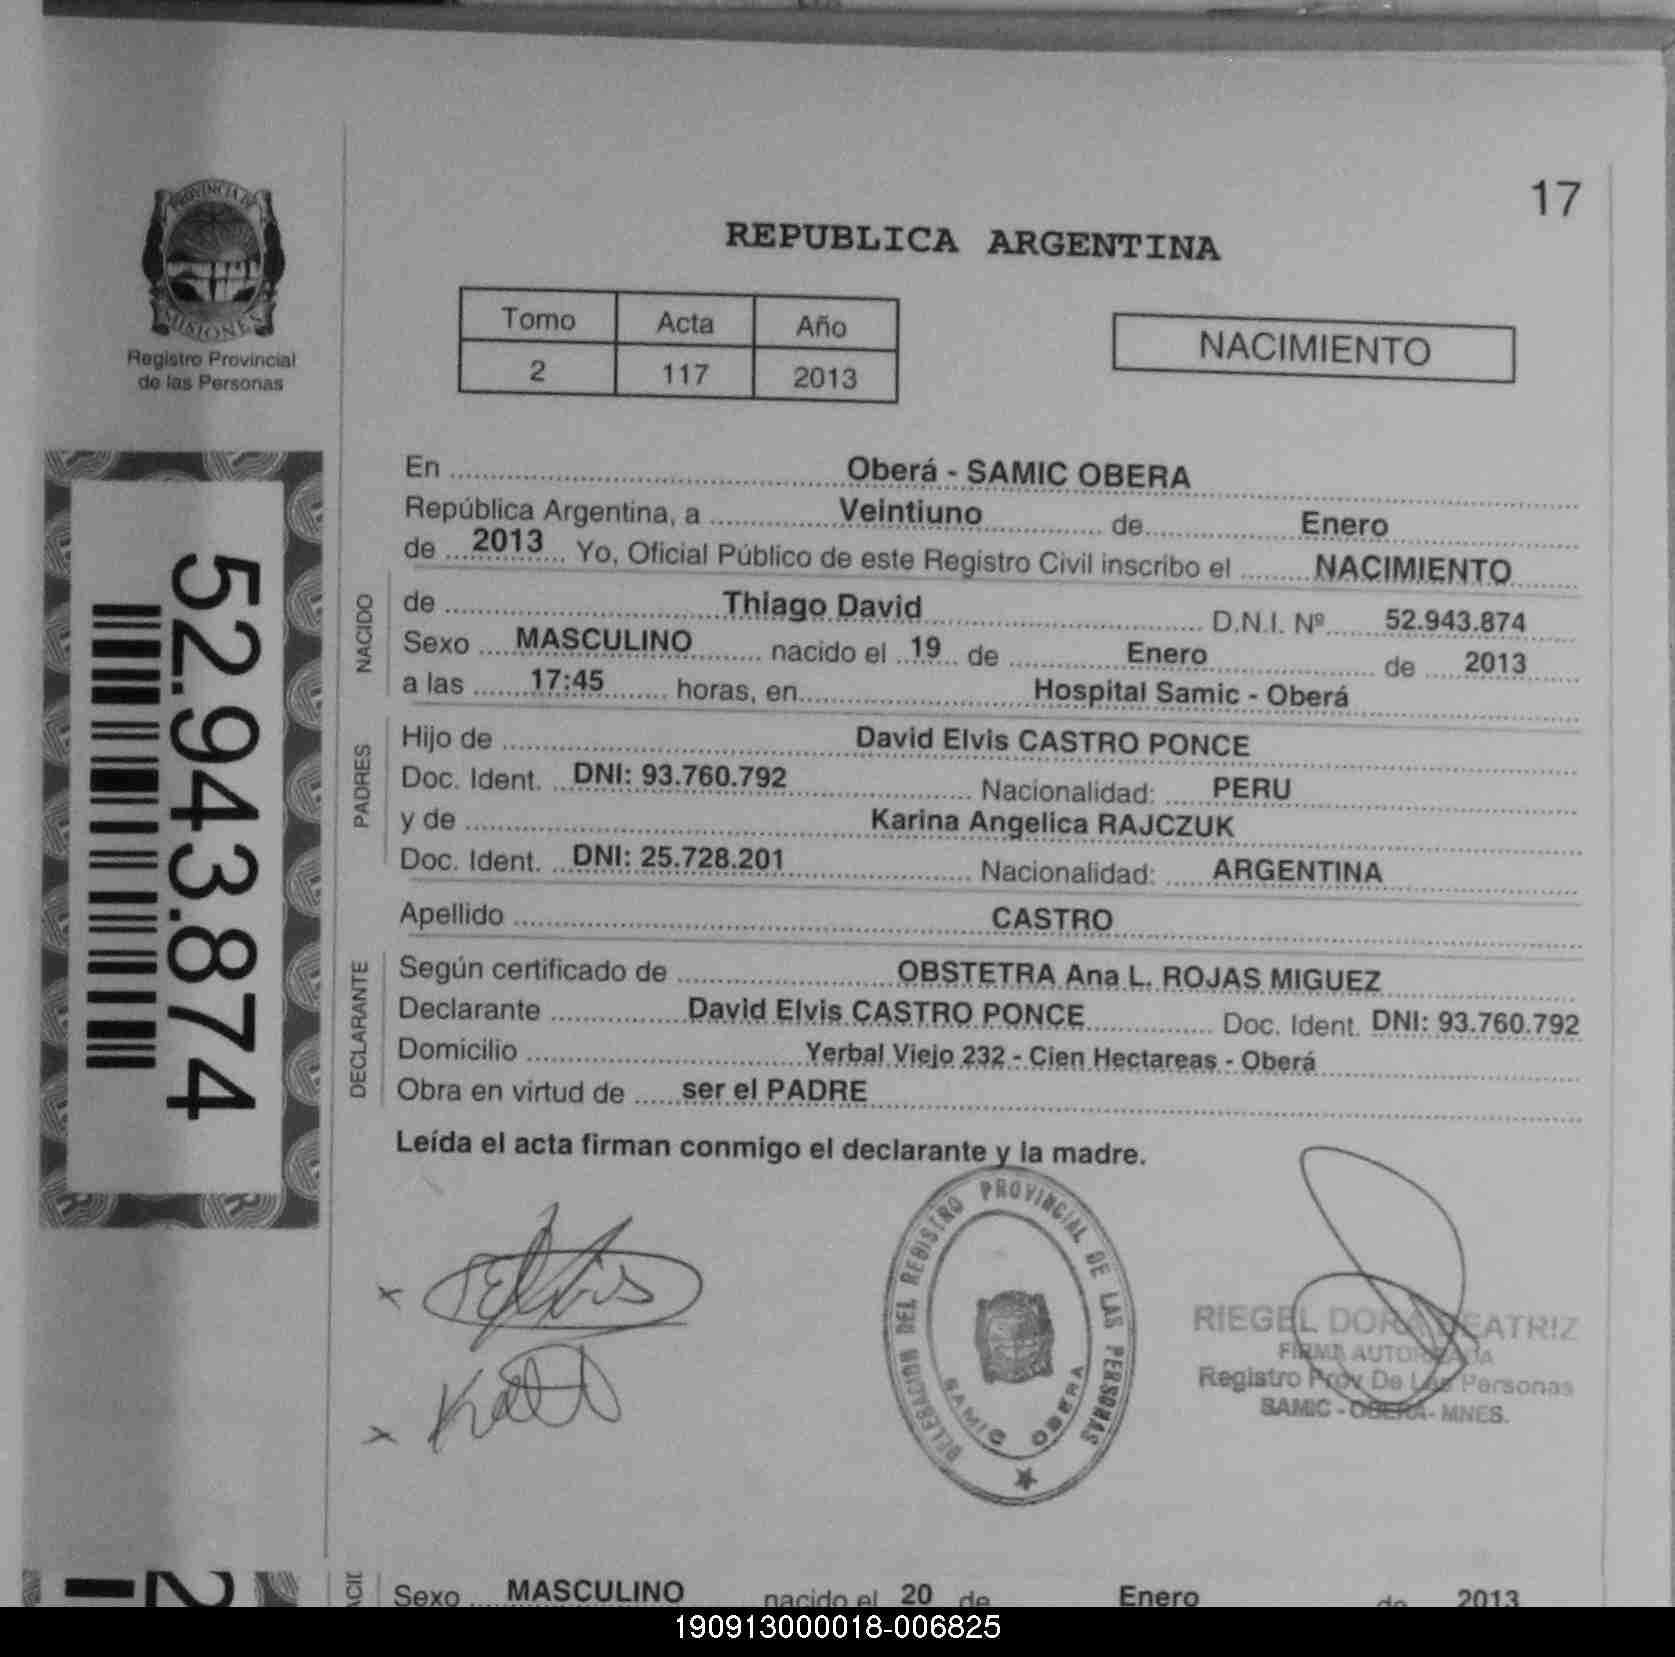 17
PROVINCIA DE
MISIONES
Registro Provincial
de las Personas
REPUBLICA ARGENTINA
Tomo Acta Año
2 117 2013
NACIMIENTO
52.943.874
En Oberá - SAMIC OBERA
República Argentina, a Veintiuno de Enero
de 2013 Yo, Oficial Público de este Registro Civil inscribo el NACIMIENTO
NACIDO
de Thiago David D.N.I. Nº 52.943.874
Sexo MASCULINO nacido el 19 de Enero de 2013
a las 17:45 horas, en Hospital Samic - Oberá
PADRES
Hijo de David Elvis CASTRO PONCE
Doc. Ident. DNI: 93.760.792 Nacionalidad: PERU
y de Karina Angelica RAJCZUK
Doc. Ident. DNI: 25.728.201 Nacionalidad: ARGENTINA
Apellido CASTRO
DECLARANTE
Según certificado de OBSTETRA Ana L. ROJAS MIGUEZ
Declarante David Elvis CASTRO PONCE Doc. Ident. DNI: 93.760.792
Domicilio Yerbal Viejo 232 - Cien Hectareas - Oberá
Obra en virtud de ser el PADRE
Leída el acta firman conmigo el declarante y la madre.
DELEGACION DEL REGISTRO PROVINCIAL DE LAS PERSONAS
SAMIC OBERA
RIEGEL DORA BEATRIZ
FIRMA AUTORIZADA
Registro Prov De Las Personas
SAMIC - OBERA - MNES.
Sexo MASCULINO nacido el 20 de Enero de 2013
190913000018-006825